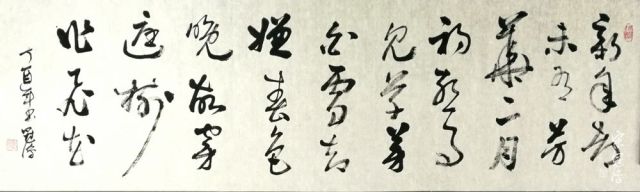 新年都
未有芳
華二月
初驚
見草芽
白雪却
嫌春色
晚故穿
庭樹
作飛花
丁酉年